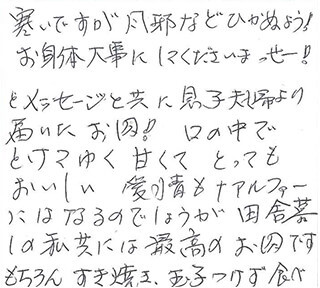 寒いですが風邪などひかぬよう!
お身体大事にしてくださいまっせー!!
とメッセージと共に息子夫婦より
届いたお肉!! 口の中で
とけてゆく 甘くて とっても
おいしい 愛情もプアルファー
にはなるのでしょうが 田舎暮
しの私共には最高のお肉です
もちろん すき焼き、玉子つけず食べ